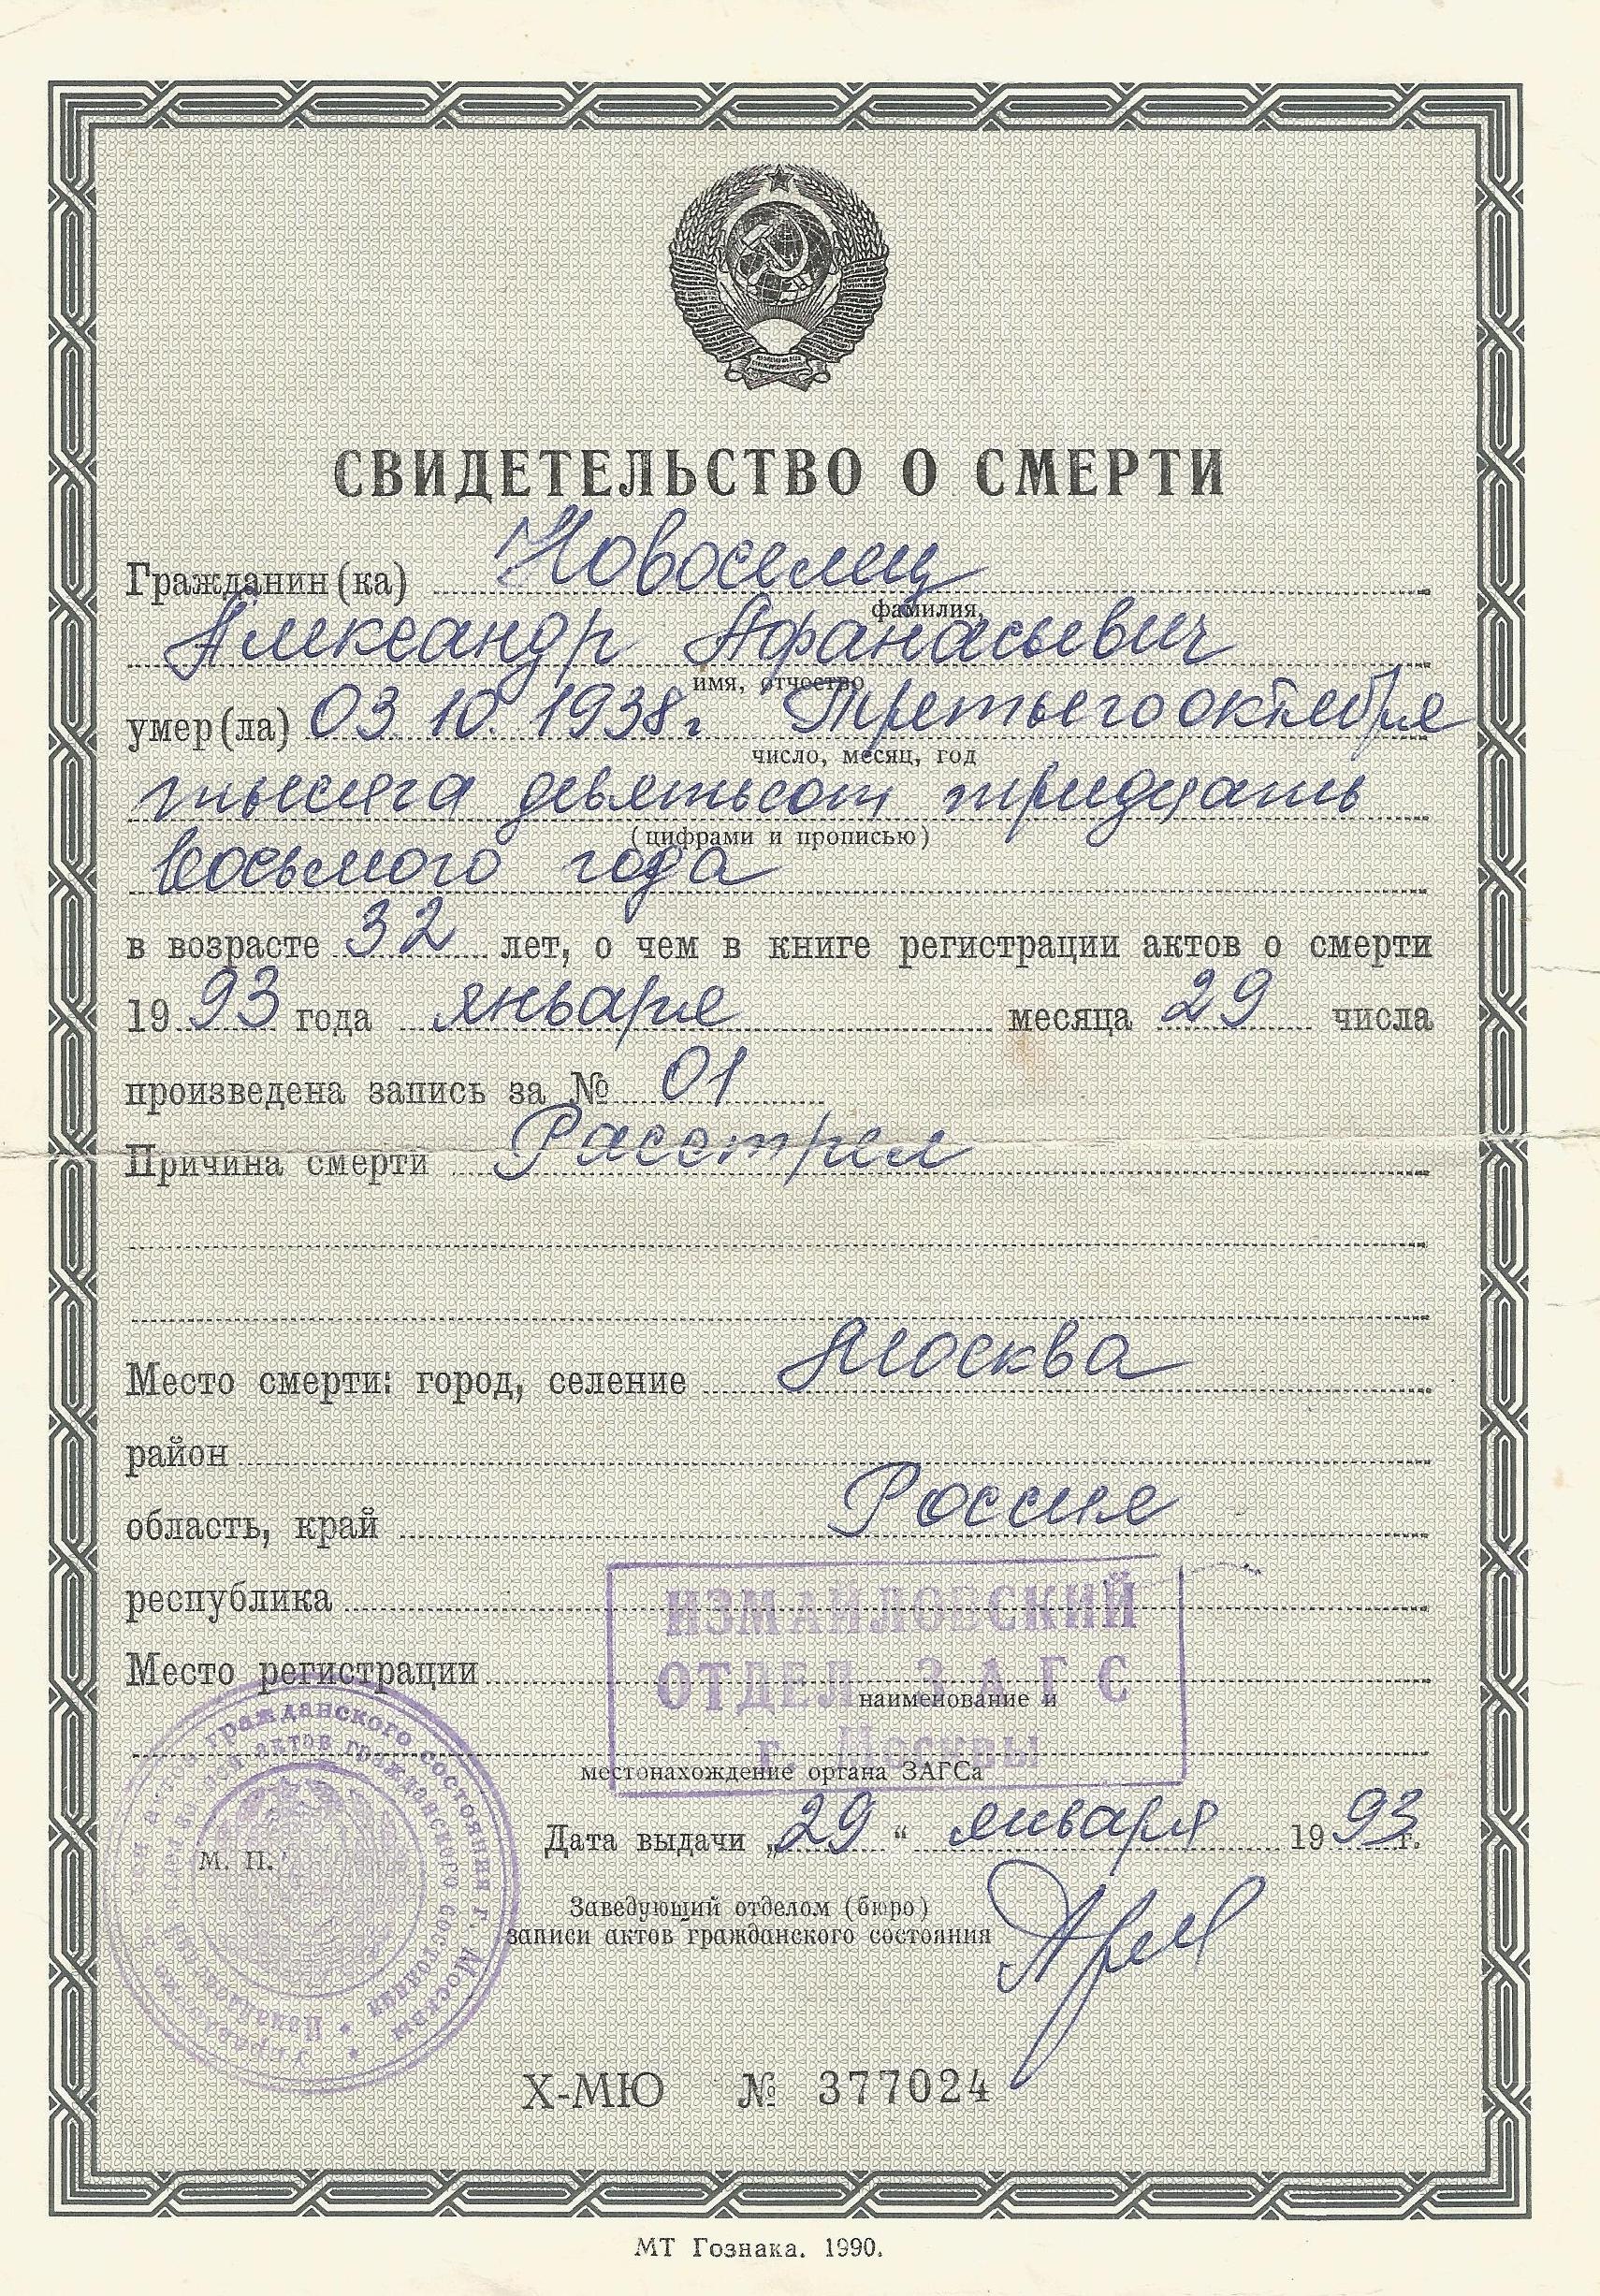 СВИДЕТЕЛЬСТВО О СМЕРТИ
Гражданин(ка) Новоселец
фамилия,
Александр Афанасьевич
имя, отчество
умер(ла) 03.10.1938г Третьего октября
число, месяц, год
тысяча девятьсот тридцать
(цифрами и прописью)
восьмого года
в возрасте 32 лет, о чем в книге регистрации актов о смерти
19 93 года января месяца 29 числа
произведена запись за № 01
Причина смерти Расстрел
Место смерти: город, селение Москва
район
область, край Россия
республика
ИЗМАЙЛОВСКИЙ
Место регистрации
ОТДЕЛ ЗАГС
наименование и
г. Москвы
местонахождение органа ЗАГСа
Дата выдачи „29“ января 19 93 г.
М. П.
Заведующий отделом (бюро)
записи актов гражданского состояния
гражданского состояния г. Москвы
актов гражданского состояния
X-МЮ № 377024
МТ Гознака. 1990.